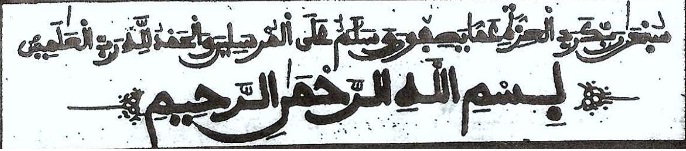 سُبْحَٰنَ رَبِّكَ رَبِّ الْعِزَّةِ عَمَّا يَصِفُونَ وَسَلَٰمٌ عَلَى الْمُرْسَلِينَ وَالْحَمْدُ لِلَّهِ رَبِّ الْعَٰلَمِينَ
بِسْمِ اللَّهِ الرَّحْمَٰنِ الرَّحِيمِ